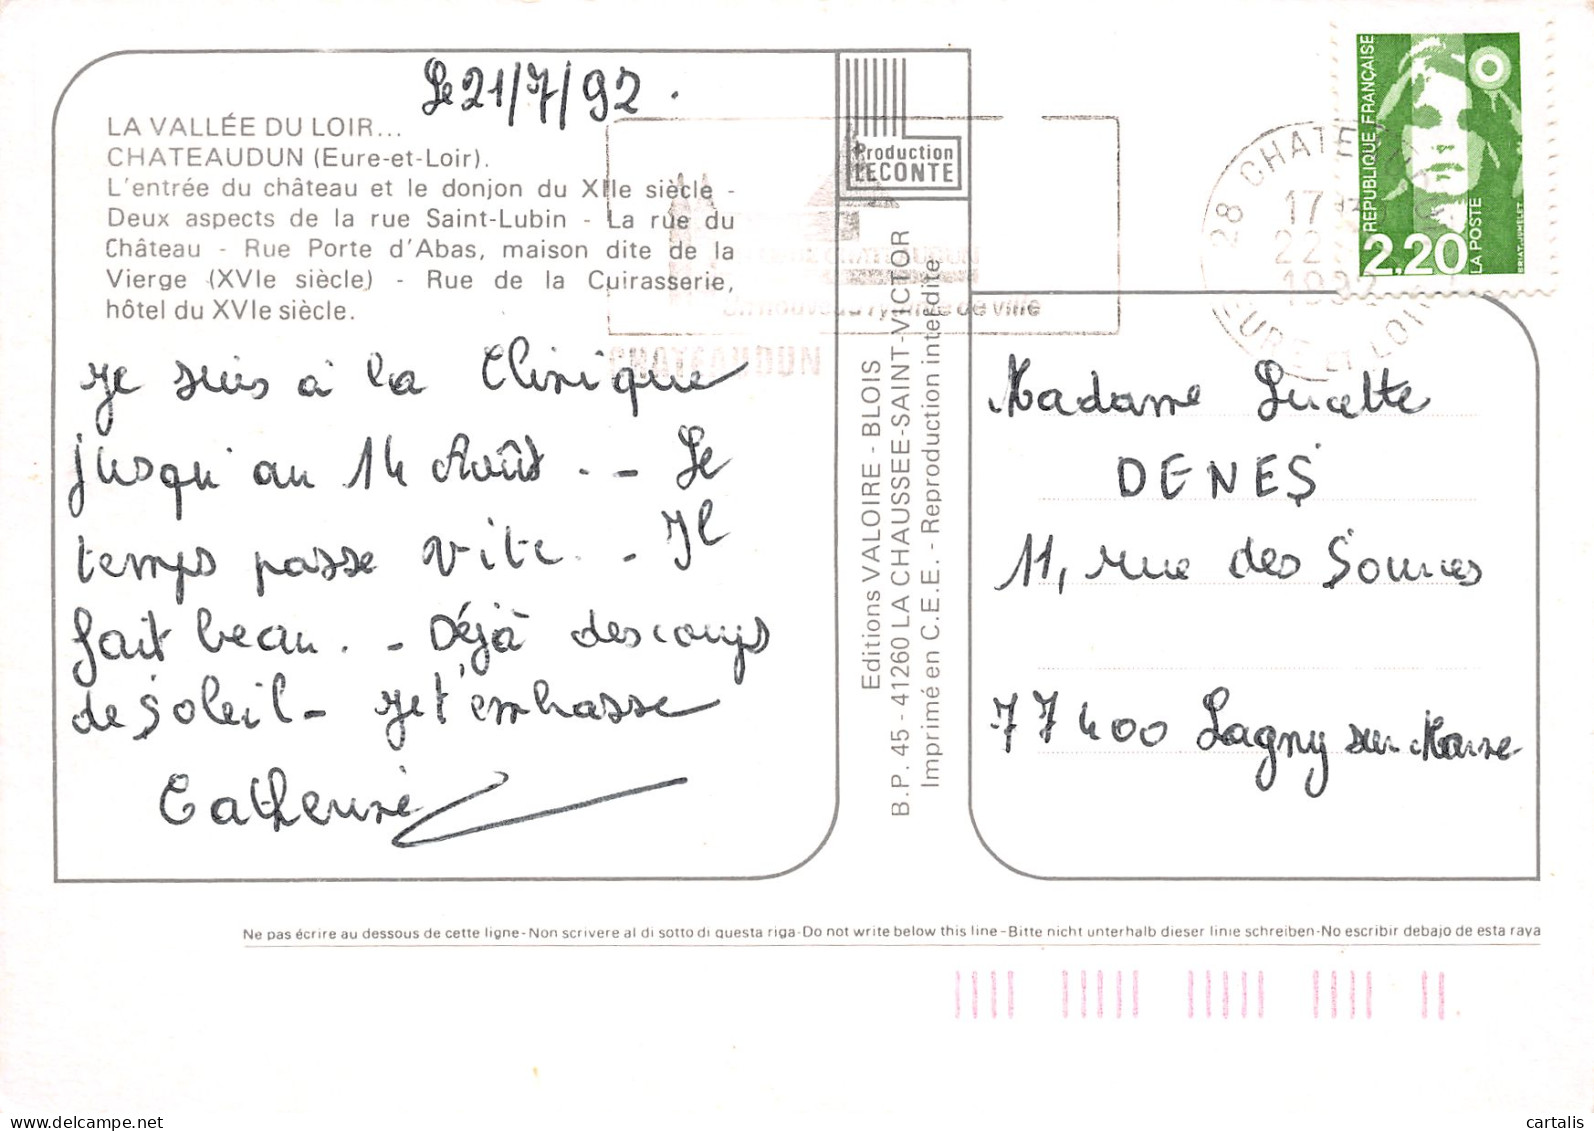 Le 21/7/92.
LA VALLÉE DU LOIR...
CHATEAUDUN (Eure-et-Loir).
L'entrée du château et le donjon du XIIe siècle -
Deux aspects de la rue Saint-Lubin - La rue du
Château - Rue Porte d'Abas, maison dite de la
Vierge (XVIe siècle) - Rue de la Cuirasserie,
hôtel du XVIe siècle.
Je suis à la Clinique
jusqu'au 14 Août. - Le
temps passe vite. - Il
fait beau. - Déjà des coups
de Soleil - Je t'embrasse
Catherine
Production
LECONTE
CHATEAUDUN
de ville
Editions VALOIRE - BLOIS
B.P. 45 - 41260 LA CHAUSSEE-SAINT-VICTOR
Imprimé en C.E.E. - Reproduction interdite
28 CHATEAUDUN
17
22
1992
EURE ET LOIR
REPUBLIQUE FRANÇAISE
2,20
LA POSTE
BRIAT-JUMELET
Madame Lucette
DENES
11, rue des Sources
77400 Lagny sur Marne
Ne pas écrire au dessous de cette ligne-Non scrivere al di sotto di questa riga-Do not write below this line-Bitte nicht unterhalb dieser linie schreiben-No escribir debajo de esta raya
cartalis
delcampe.net